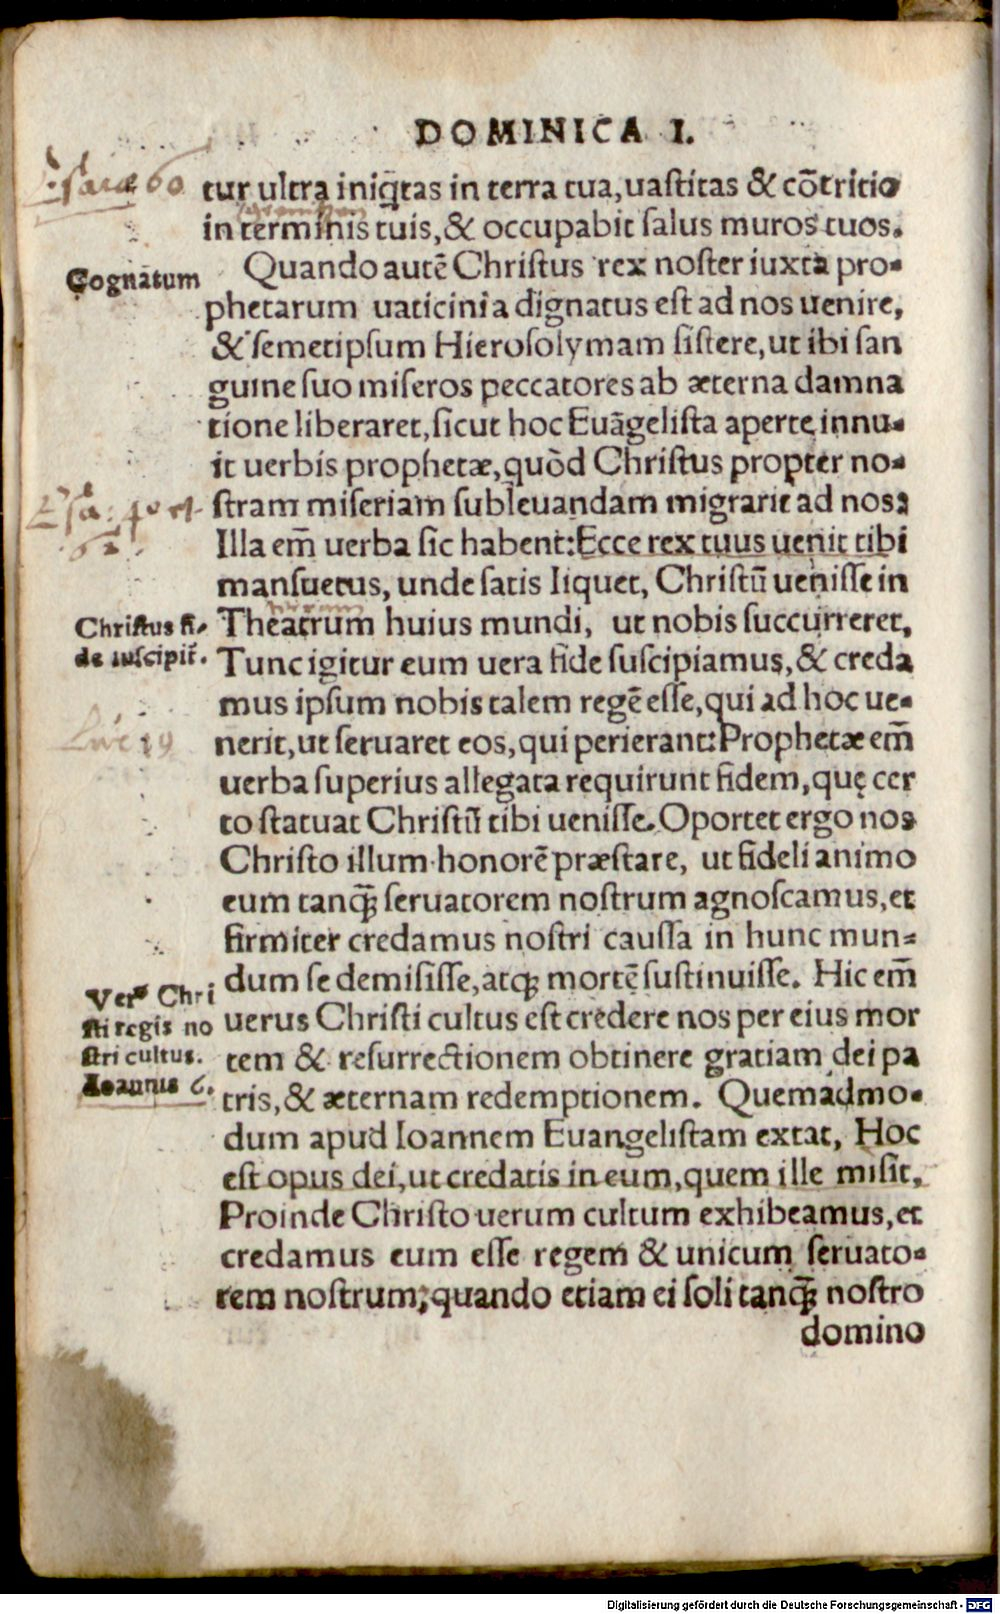 DOMINICA I.
Esaiæ 60
tur ultra iniq̃tas in terra tua, uastitas & cõtritio
in terminis tuis, & occupabit salus muros tuos.
Cognatum
Quando autẽ Christus rex noster iuxta pro-
phetarum uaticinia dignatus est ad nos uenire,
& semetipsum Hierosolymam sistere, ut ibi san
guine suo miseros peccatores ab æterna damna
tione liberaret, sicut hoc Euãgelista aperte innu-
it uerbis prophetæ, quòd Christus propter no-
Esa: 40 et
62.
stram miseriam subleuandam migrarit ad nos:
Illa em̃ uerba sic habent: Ecce rex tuus uenit tibi
mansuetus, unde satis liquet, Christũ uenisse in
Christus fi-
de suscipit̃.
Theatrum huius mundi, ut nobis succurreret,
Tunc igitur eum uera fide suscipiamus, & creda
mus ipsum nobis talem regẽ esse, qui ad hoc ue-
Luc 19
nerit, ut seruaret eos, qui perierant: Prophetæ em̃
uerba superius allegata requirunt fidem, quę cer
to statuat Christũ tibi uenisse. Oportet ergo nos
Christo illum honorẽ præstare, ut fideli animo
eum tanqꝫ̃ seruatorem nostrum agnoscamus, et
firmiter credamus nostri caussa in hunc mun-
dum se demisisse, atqꝫ mortẽ sustinuisse. Hic em̃
Verꝰ Chri
sti regis no
stri cultus.
Ioannis 6.
uerus Christi cultus est credere nos per eius mor
tem & resurrectionem obtinere gratiam dei pa
tris, & æternam redemptionem. Quemadmo-
dum apud Ioannem Euangelistam extat, Hoc
est opus dei, ut credatis in eum, quem ille misit,
Proinde Christo uerum cultum exhibeamus, et
credamus eum esse regem & unicum seruato-
rem nostrum; quando etiam ei soli tanqꝫ̃ nostro
domino
Digitalisierung gefördert durch die Deutsche Forschungsgemeinschaft - DFG